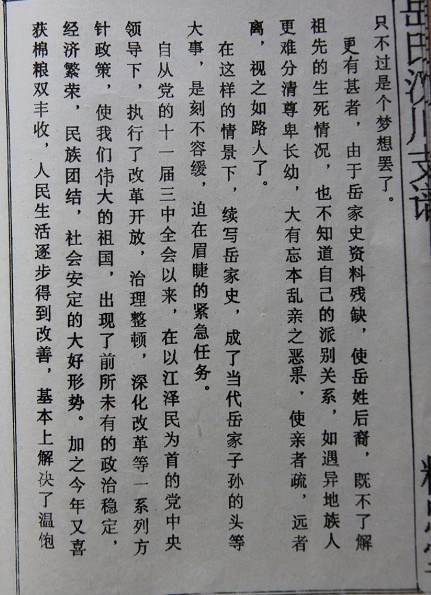 岳氏汶川支谱
只不过是个梦想罢了。
更有甚者，由于岳家史资料残缺，使岳姓后裔，既不了解
祖先的生死情况，也不知道自己的派别关系，如遇异地族人
更难分清尊卑长幼，大有忘本乱亲之恶果，使亲者疏，远者
离，视之如路人了。
在这样的情景下，续写岳家史，成了当代岳家子孙的头等
大事，是刻不容缓，迫在眉睫的紧急任务。
自从党的十一届三中全会以来，在以江泽民为首的党中央
领导下，执行了改革开放，治理整顿，深化改革等一系列方
针政策，使我们伟大的祖国，出现了前所未有的政治稳定，
经济繁荣，民族团结，社会安定的大好形势。加之今年又喜
获棉粮双丰收，人民生活逐步得到改善，基本上解决了温饱